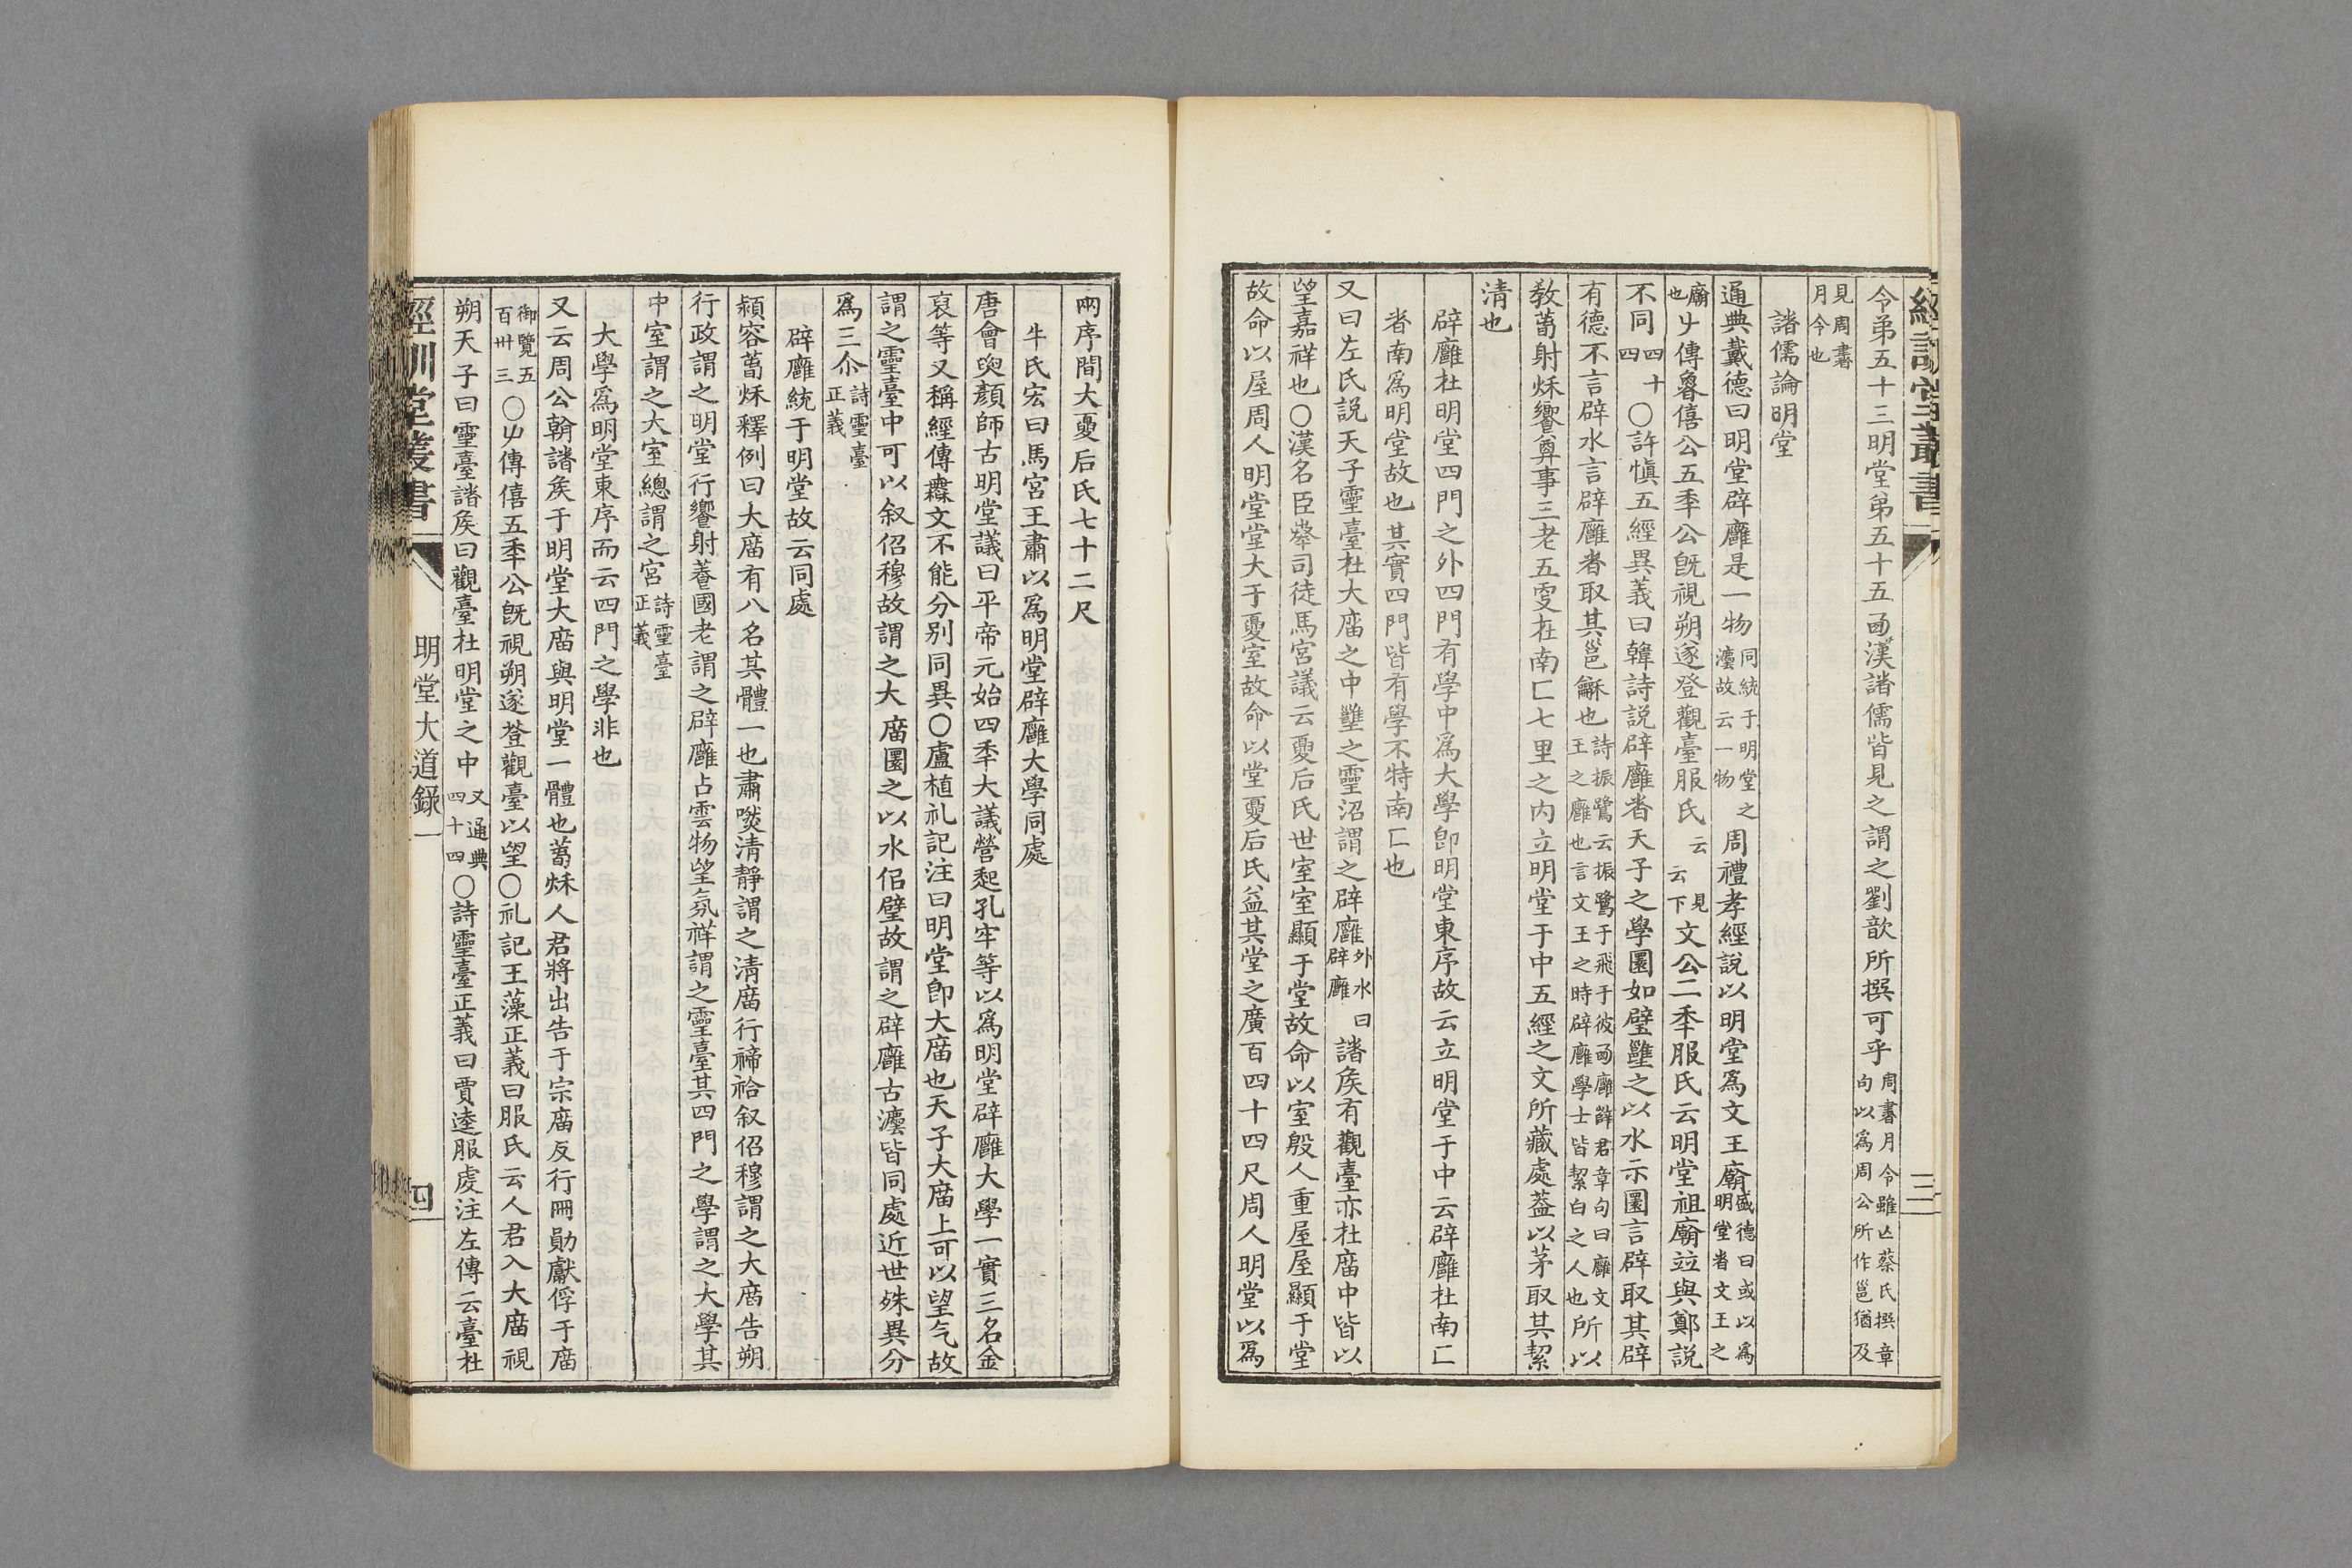 經訓堂叢書
三
令弟五十三明堂弟五十五酉漢諸儒皆見之謂之劉歆所撰可乎周書月令雖亾蔡氏撰章句以爲周公所作邕猶及
見周書月令也
諸儒論明堂
通典戴德曰明堂辟廱是一物同統于明堂之灋故云一物周禮孝經說以明堂爲文王廟盛德曰或以爲明堂者文王之
廟也𠂇傳魯僖公五秊公旣視朔遂登觀臺服氏云云見下文公二秊服氏云明堂祖廟竝與鄭說
不同四十四〇許愼五經異義曰韓詩說辟廱者天子之學圜如璧壅之以水示圜言辟取其辟
有德不言辟水言辟廱者取其邕龢也詩振鷺云振鷺于飛于彼西廱薛君章句曰廱文王之廱也言文王之時辟廱學士皆絜白之人也所以
敎萅射秌饗尊事三老五叜在南匚七里之内立明堂于中五經之文所藏處葢以茅取其絜
淸也
辟廱杜明堂四門之外四門有學中爲大學卽明堂東序故云立明堂于中云辟廱杜南匚
者南爲明堂故也其實四門皆有學不特南匚也
又曰左氏說天子靈臺杜大庿之中壅之靈沼謂之辟廱外水曰辟廱諸矦有觀臺亦杜庿中皆以
望嘉祥也〇漢名臣奏司徒馬宮議云夏后氏世室室顯于堂故命以室殷人重屋屋顯于堂
故命以屋周人明堂堂大于夏室故命以堂夏后氏益其堂之廣百四十四尺周人明堂以爲
兩序間大夏后氏七十二尺
牛氏宏曰馬宮王肅以爲明堂辟廱大學同處
唐會㬰顏師古明堂議曰平帝元始四秊大議營起孔牢等以爲明堂辟廱大學一實三名金
裒等又稱經傳𣞤文不能分别同異〇盧植礼記注曰明堂卽大庿也天子大庿上可以望气故
謂之靈臺中可以叙佋穆故謂之大庿圜之以水侣璧故謂之辟廱古灋皆同處近世殊異分
爲三尒詩靈臺正義
辟廱統于明堂故云同處
頴容萅秌釋例曰大庿有八名其體一也肅嘫淸靜謂之淸庿行禘祫叙佋穆謂之大庿告朔
行政謂之明堂行饗射養國老謂之辟廱占雲物望氛祥謂之靈臺其四門之學謂之大學其
中室謂之大室總謂之宮詩靈臺正義
大學爲明堂東序而云四門之學非也
又云周公朝諸矦于明堂大庿與明堂一體也萅秌人君將出告于宗庿反行冊勛獻俘于庿
御覽五百卅三〇𠂇傳僖五秊公旣視朔遂登觀臺以望〇礼記王藻正義曰服氏云人君入大庿視
朔天子曰靈臺諸矦曰觀臺杜明堂之中又通典四十四〇詩靈臺正義曰賈逵服虔注左傳云臺杜
經訓堂叢書
明堂大道錄一
四